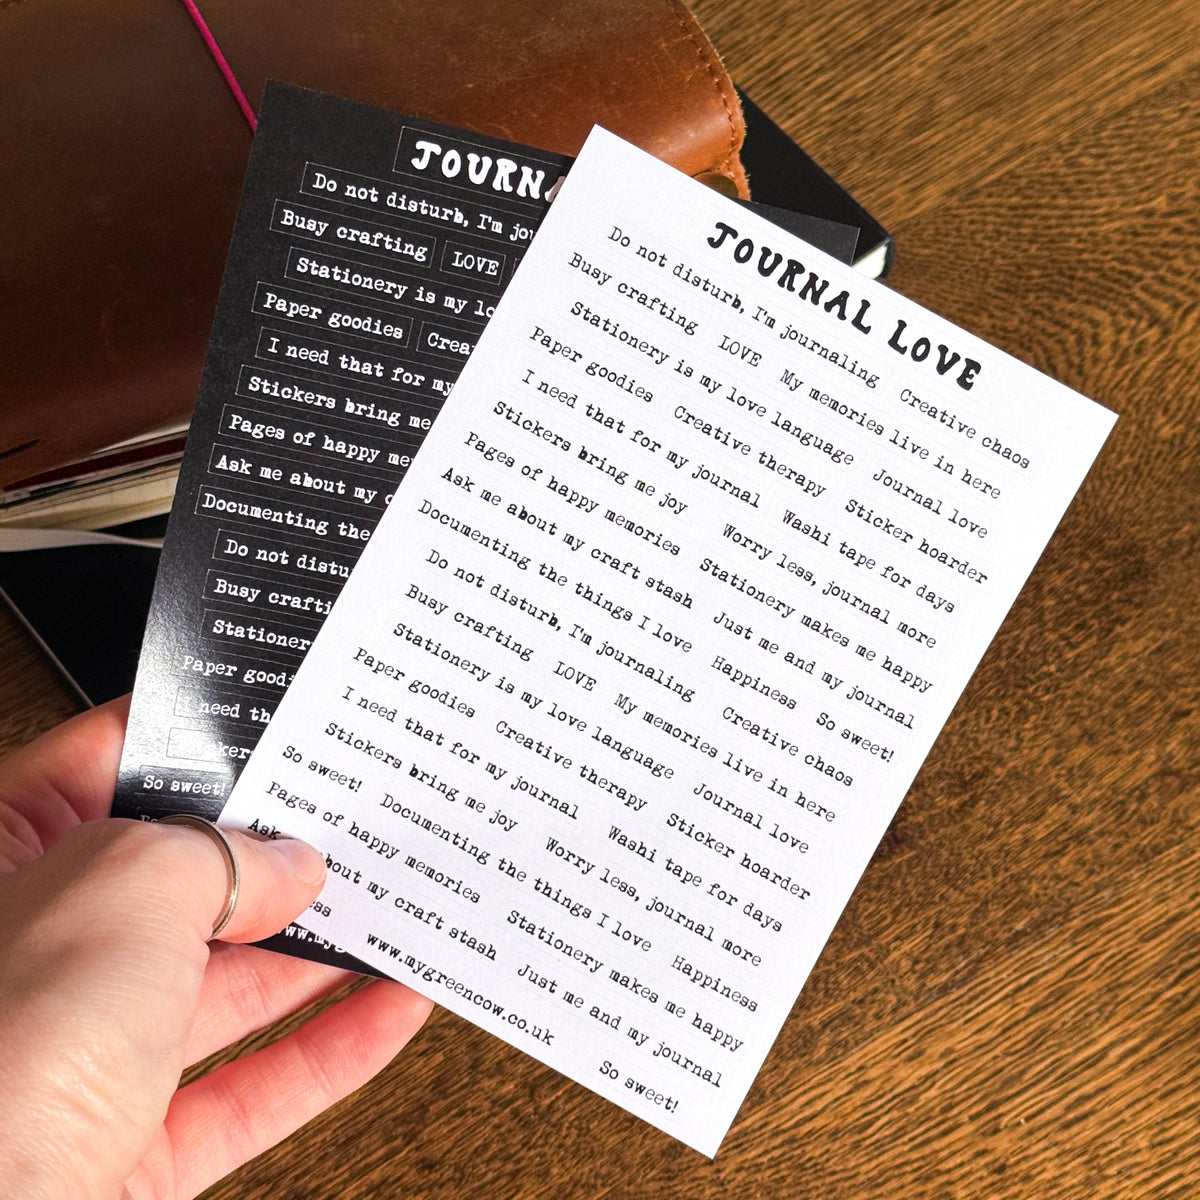 JOURN
Do not disturb, I'm
Busy crafting LOVE
Stationery is my
Paper goodies
I need that for my
Stickers bring me
Pages of happy
Ask me about my
Documenting the
Do not
Busy
Stationery
Paper
I need
So sweet!
JOURNAL LOVE
Do not disturb, I'm journaling Creative chaos
Busy crafting LOVE My memories live in here
Stationery is my love language Journal love
Paper goodies Creative therapy Sticker hoarder
I need that for my journal Washi tape for days
Stickers bring me joy Worry less, journal more
Pages of happy memories Stationery makes me happy
Ask me about my craft stash Just me and my journal
Documenting the things I love Happiness So sweet!
Do not disturb, I'm journaling Creative chaos
Busy crafting LOVE My memories live in here
Stationery is my love language Journal love
Paper goodies Creative therapy Sticker hoarder
I need that for my journal Washi tape for days
Stickers bring me joy Worry less, journal more
So sweet! Documenting the things I love Happiness
Pages of happy memories Stationery makes me happy
Ask bout my craft stash Just me and my journal
ess www.mygreencow.co.uk So sweet!